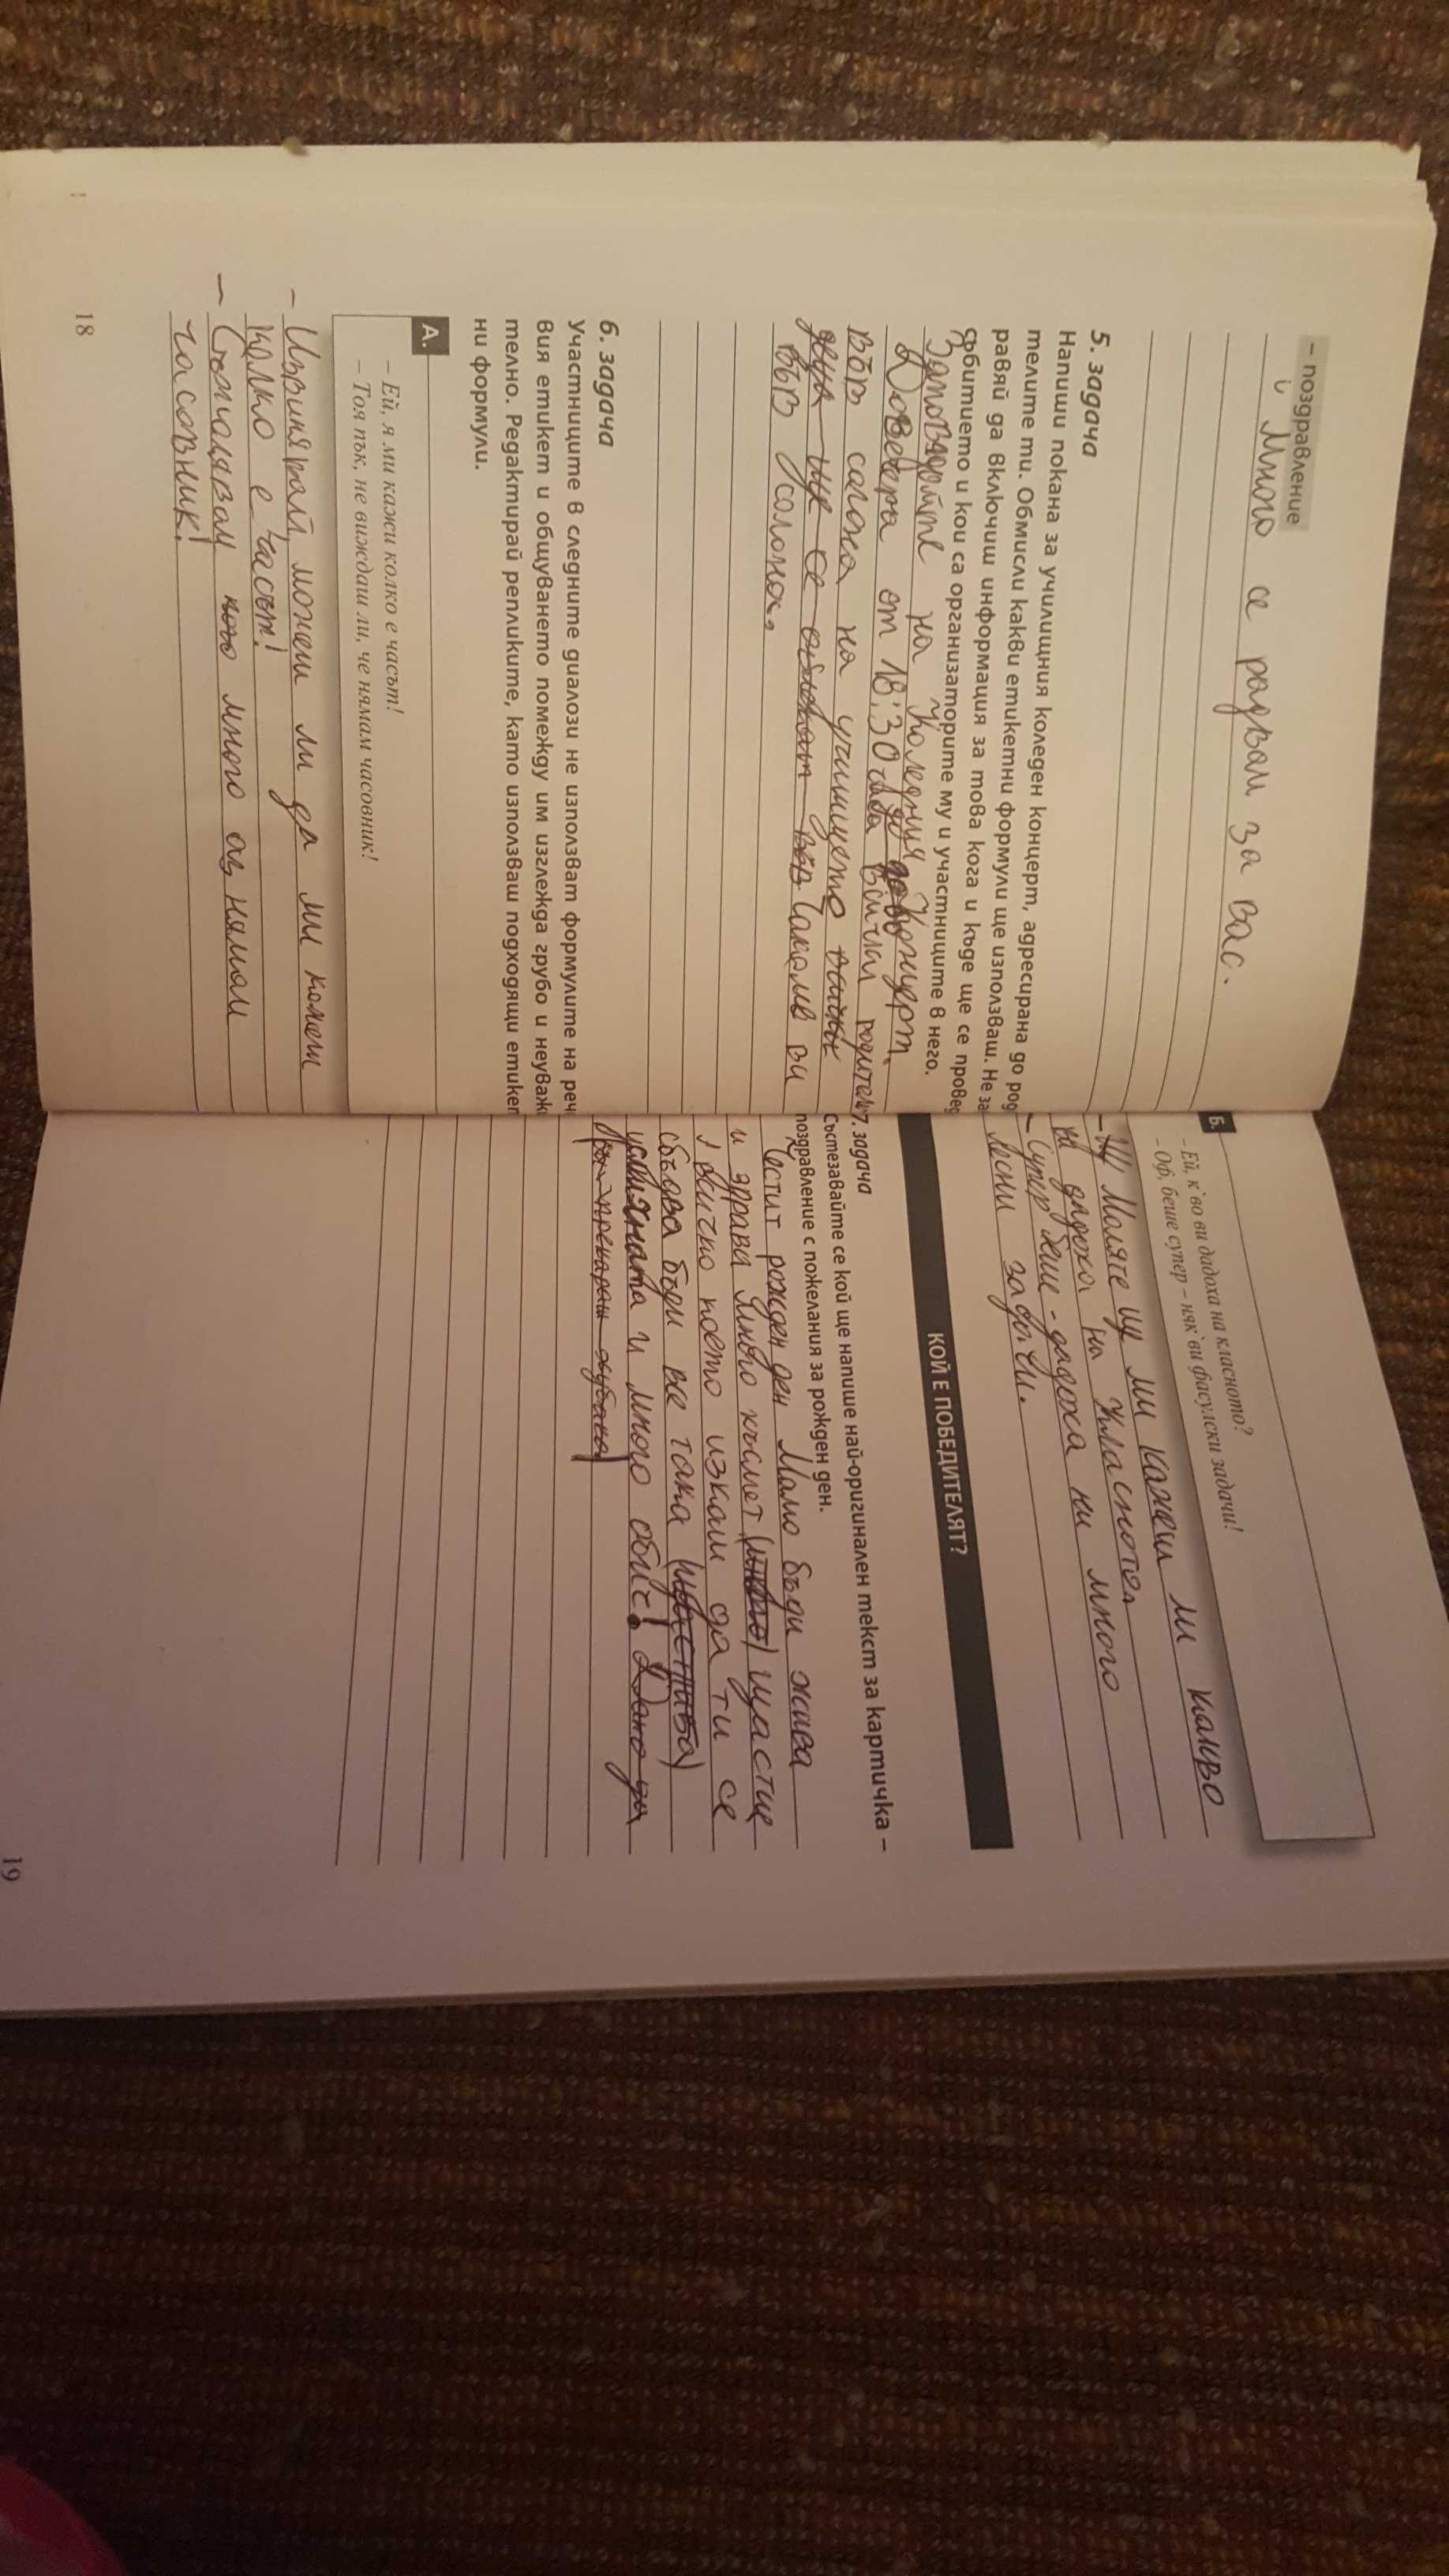 – поздравление
Много се радвам за вас.
5. задача
Напиши покана за училищния коледен концерт, адресирана до род
телите ти. Обмисли какви етикетни формули ще използваш. Не за
равяй да включиш информация за това кога и къде ще се провед
събитието и кои са организаторите му и участниците в него.
на Коледния Концерт
Довечера от 18:30 родители
във салона на училището
деца ще се Чакаме ви
във Салона.
6. задача
Участниците в следните диалози не използват формулите на реч
вия етикет и общуването помежду им изглежда грубо и неуваж
телно. Редактирай репликите, като използваш подходящи етикет
ни формули.
А.
– Ей, я ми кажи колко е часът!
– Тоя пък, не виждаш ли, че нямам часовник!
– можеш ли да ми кажеш
колко е часът!
– много аз нямам
часовник!
18
Б.
– Ей, к`во ви дадоха на класното?
– Оф, беше супер – няк`ви фасулски задачи!
ми кажеш ли какво
ви дадоха на
– Супер беше - дадоха ни много
лесни задачи.
КОЙ Е ПОБЕДИТЕЛЯТ?
7. задача
Състезавайте се кой ще напише най-оригинален текст за картичка –
поздравление с пожелания за рожден ден.
Честит рожден ден Мамо бъди жива
и здрава Много късмет (много) щастие
и всичко което искаш да ти се
сбъдва бъди все така
усмихната и много обич! Дано да
прекараш хубаво
19